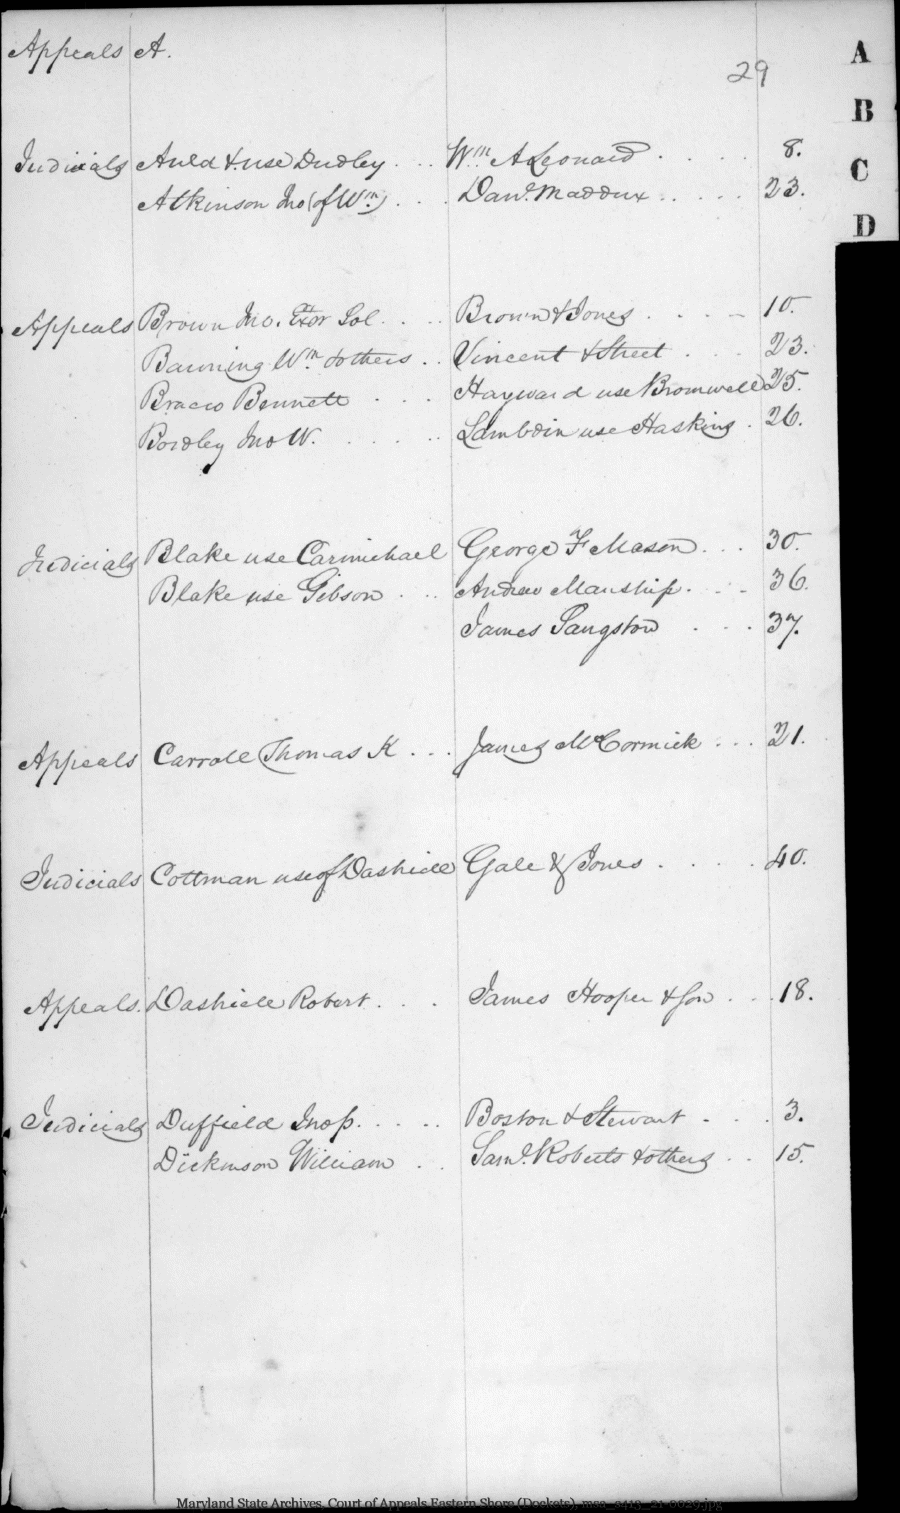 Appeals A.
29
Judicials Auld & use Dudley . . . Wm A Leonard . . . . 8.
Atkinson Jno (of Wm) . . . Danl. Maddux . . . . . 23.
Appeals Brown Jno. Exor Sol . . . . Brown & Jones . . . . 10.
Banning Wm. & others . . Vincent & Street . . . 23.
Bracco Bennett . . . Hayward use Bromwell 25.
Bordley Jno W. . . . . . Lambdin use Haskins . 26.
Judicials Blake use Carmichael George F Mason . . . 30.
Blake use Gibson . . . Andrew Manship . . . 36.
James Sangston . . . 37.
Appeals Carroll Thomas K . . . James McCormick . . . 21.
Judicials Cottman use of Dashiell Gale & Jones . . . . . 40.
Appeals. Dashiell Robert . . . James Hooper & Son . . . 18.
Judicials Duffield Jno P. . . . . . Boston & Stewart . . . . 3.
Dickinson William . . Saml. Roberts & others . . 15.
A
B
C
D
Maryland State Archives, Court of Appeals Eastern Shore (Dockets),